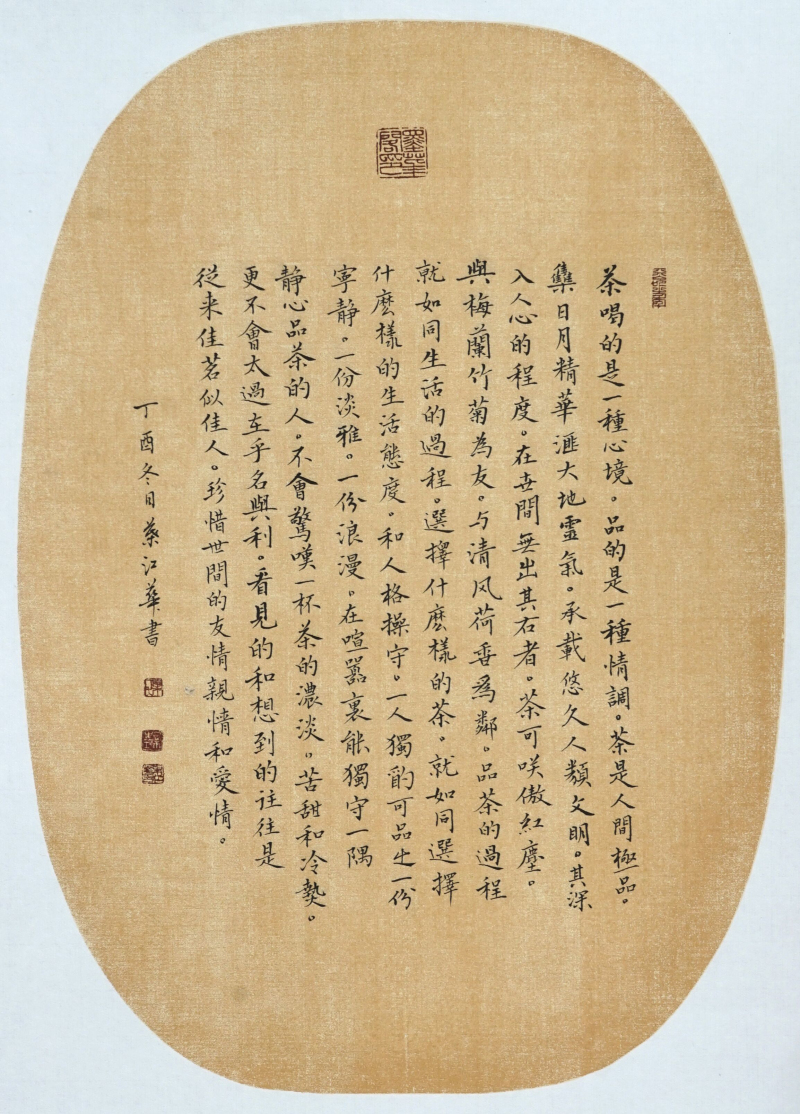 茶喝的是一種心境。品的是一種情調。茶是人間極品。
集日月精華匯大地靈氣。承載悠久人類文明。其深
入人心的程度。在世間無出其右者。茶可咲傲紅塵。
與梅蘭竹菊為友。与清风荷香為鄰。品茶的過程
就如同生活的過程。選擇什麽樣的茶。就如同選擇
什麽樣的生活態度。和人格操守。一人獨酌可品出一份
寧静。一份淡雅。一份浪漫。在喧囂裏能獨守一隅
静心品茶的人。不會驚嘆一杯茶的濃淡。苦甜和冷熱。
更不會太過在乎名與利。看見的和想到的往往是
從来佳茗似佳人。珍惜世間的友情親情和愛情。
丁酉冬日蔡江華書